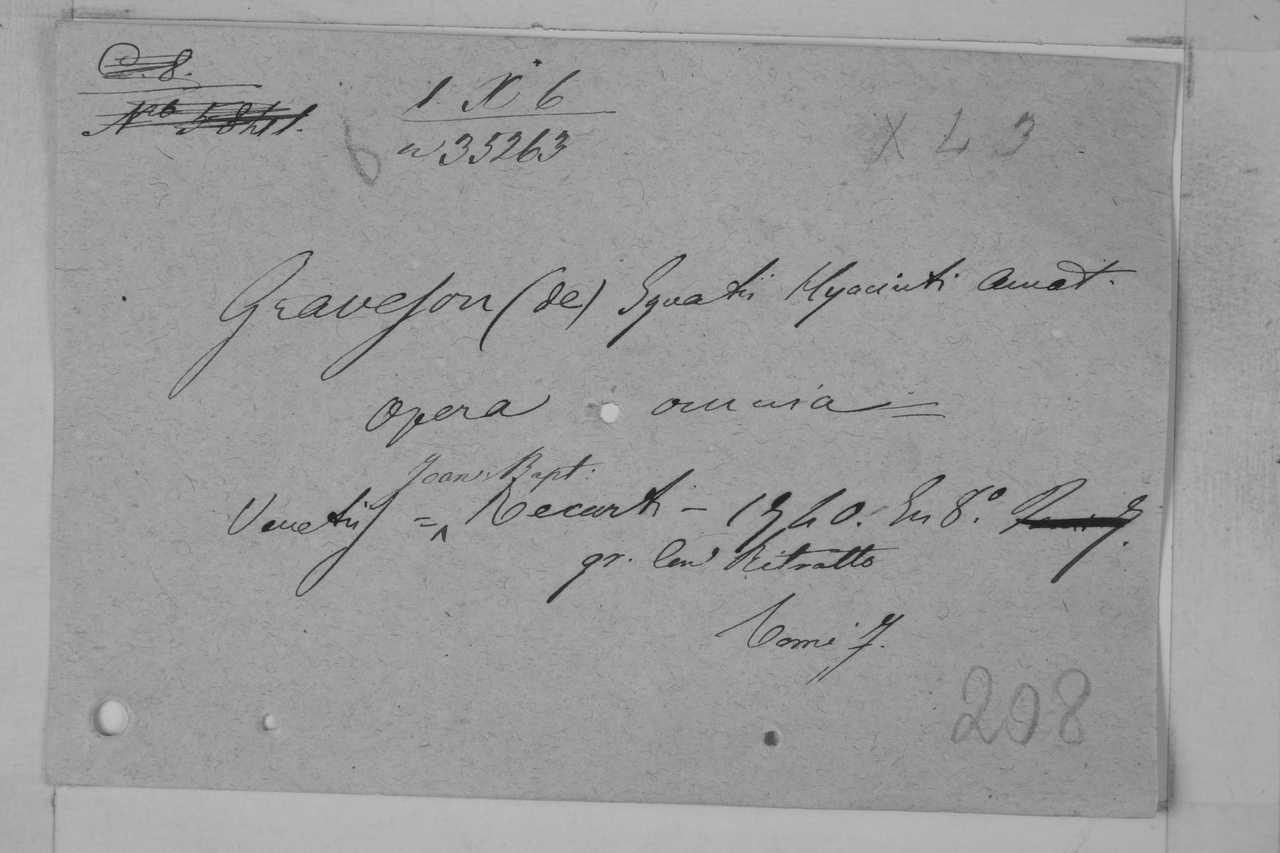 C. 8.
Nro 5841.
1. X 6
n 35263
6
X L 3
Graveson (de) Ignatii Hyacinti Amat.
opera omnia =
Joan: Bapt:
Venetiis = Recurti - 1740. In 8.°
gr. Con Ritratto
Tomi 7.
208